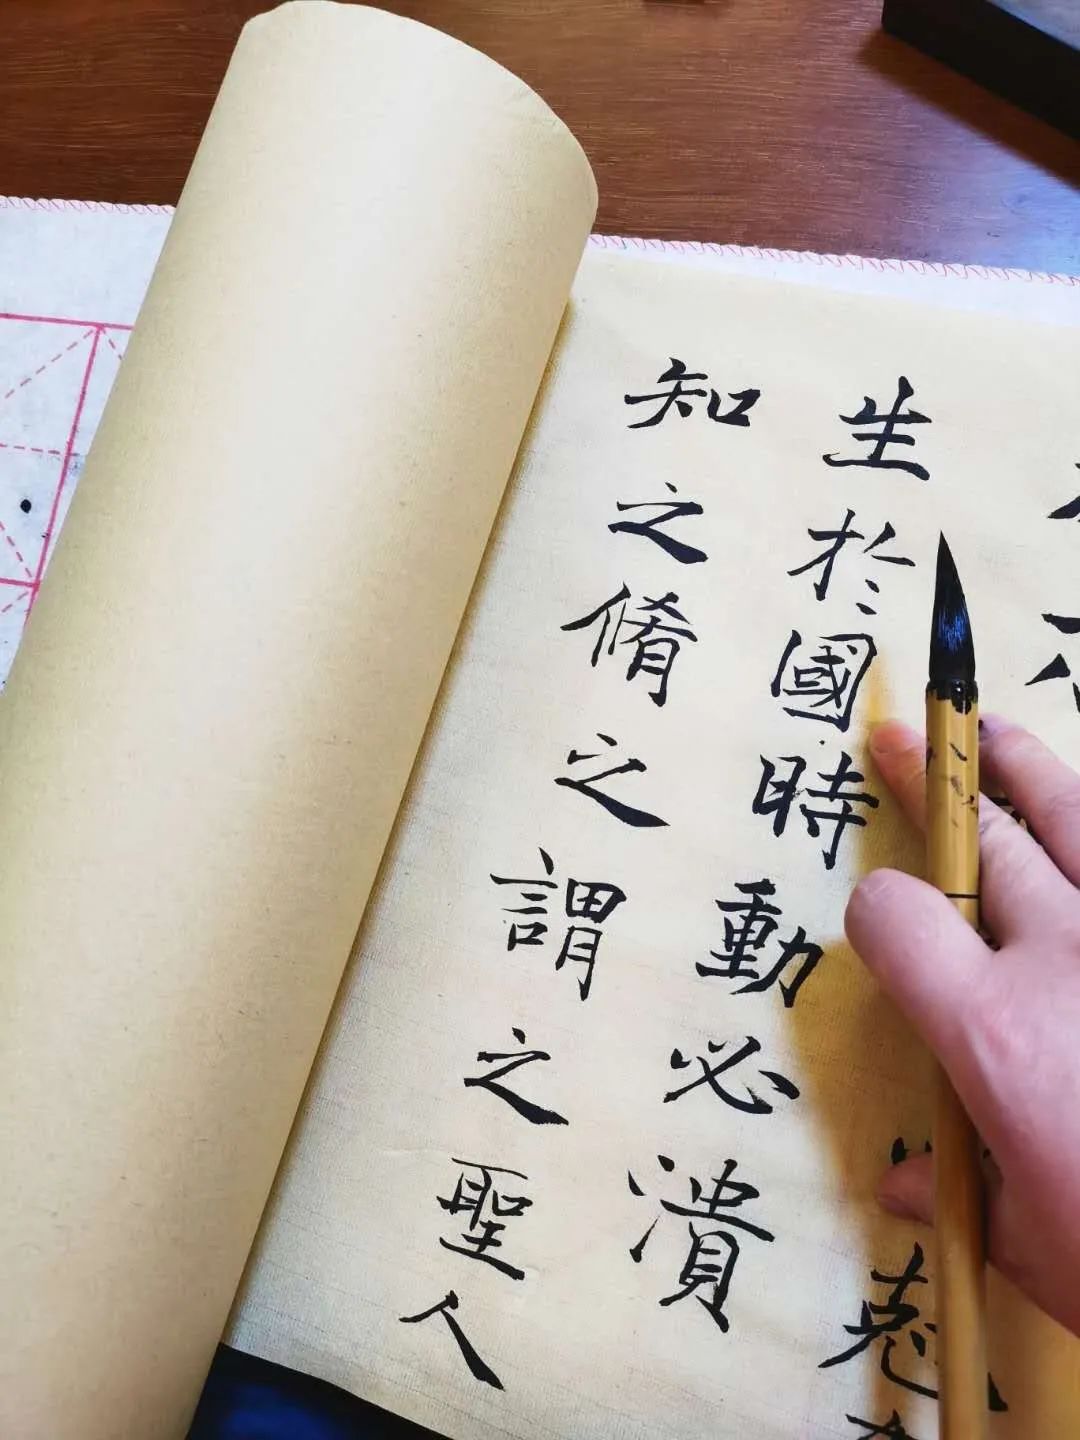 生於國時動必潰
知之脩之謂之聖人